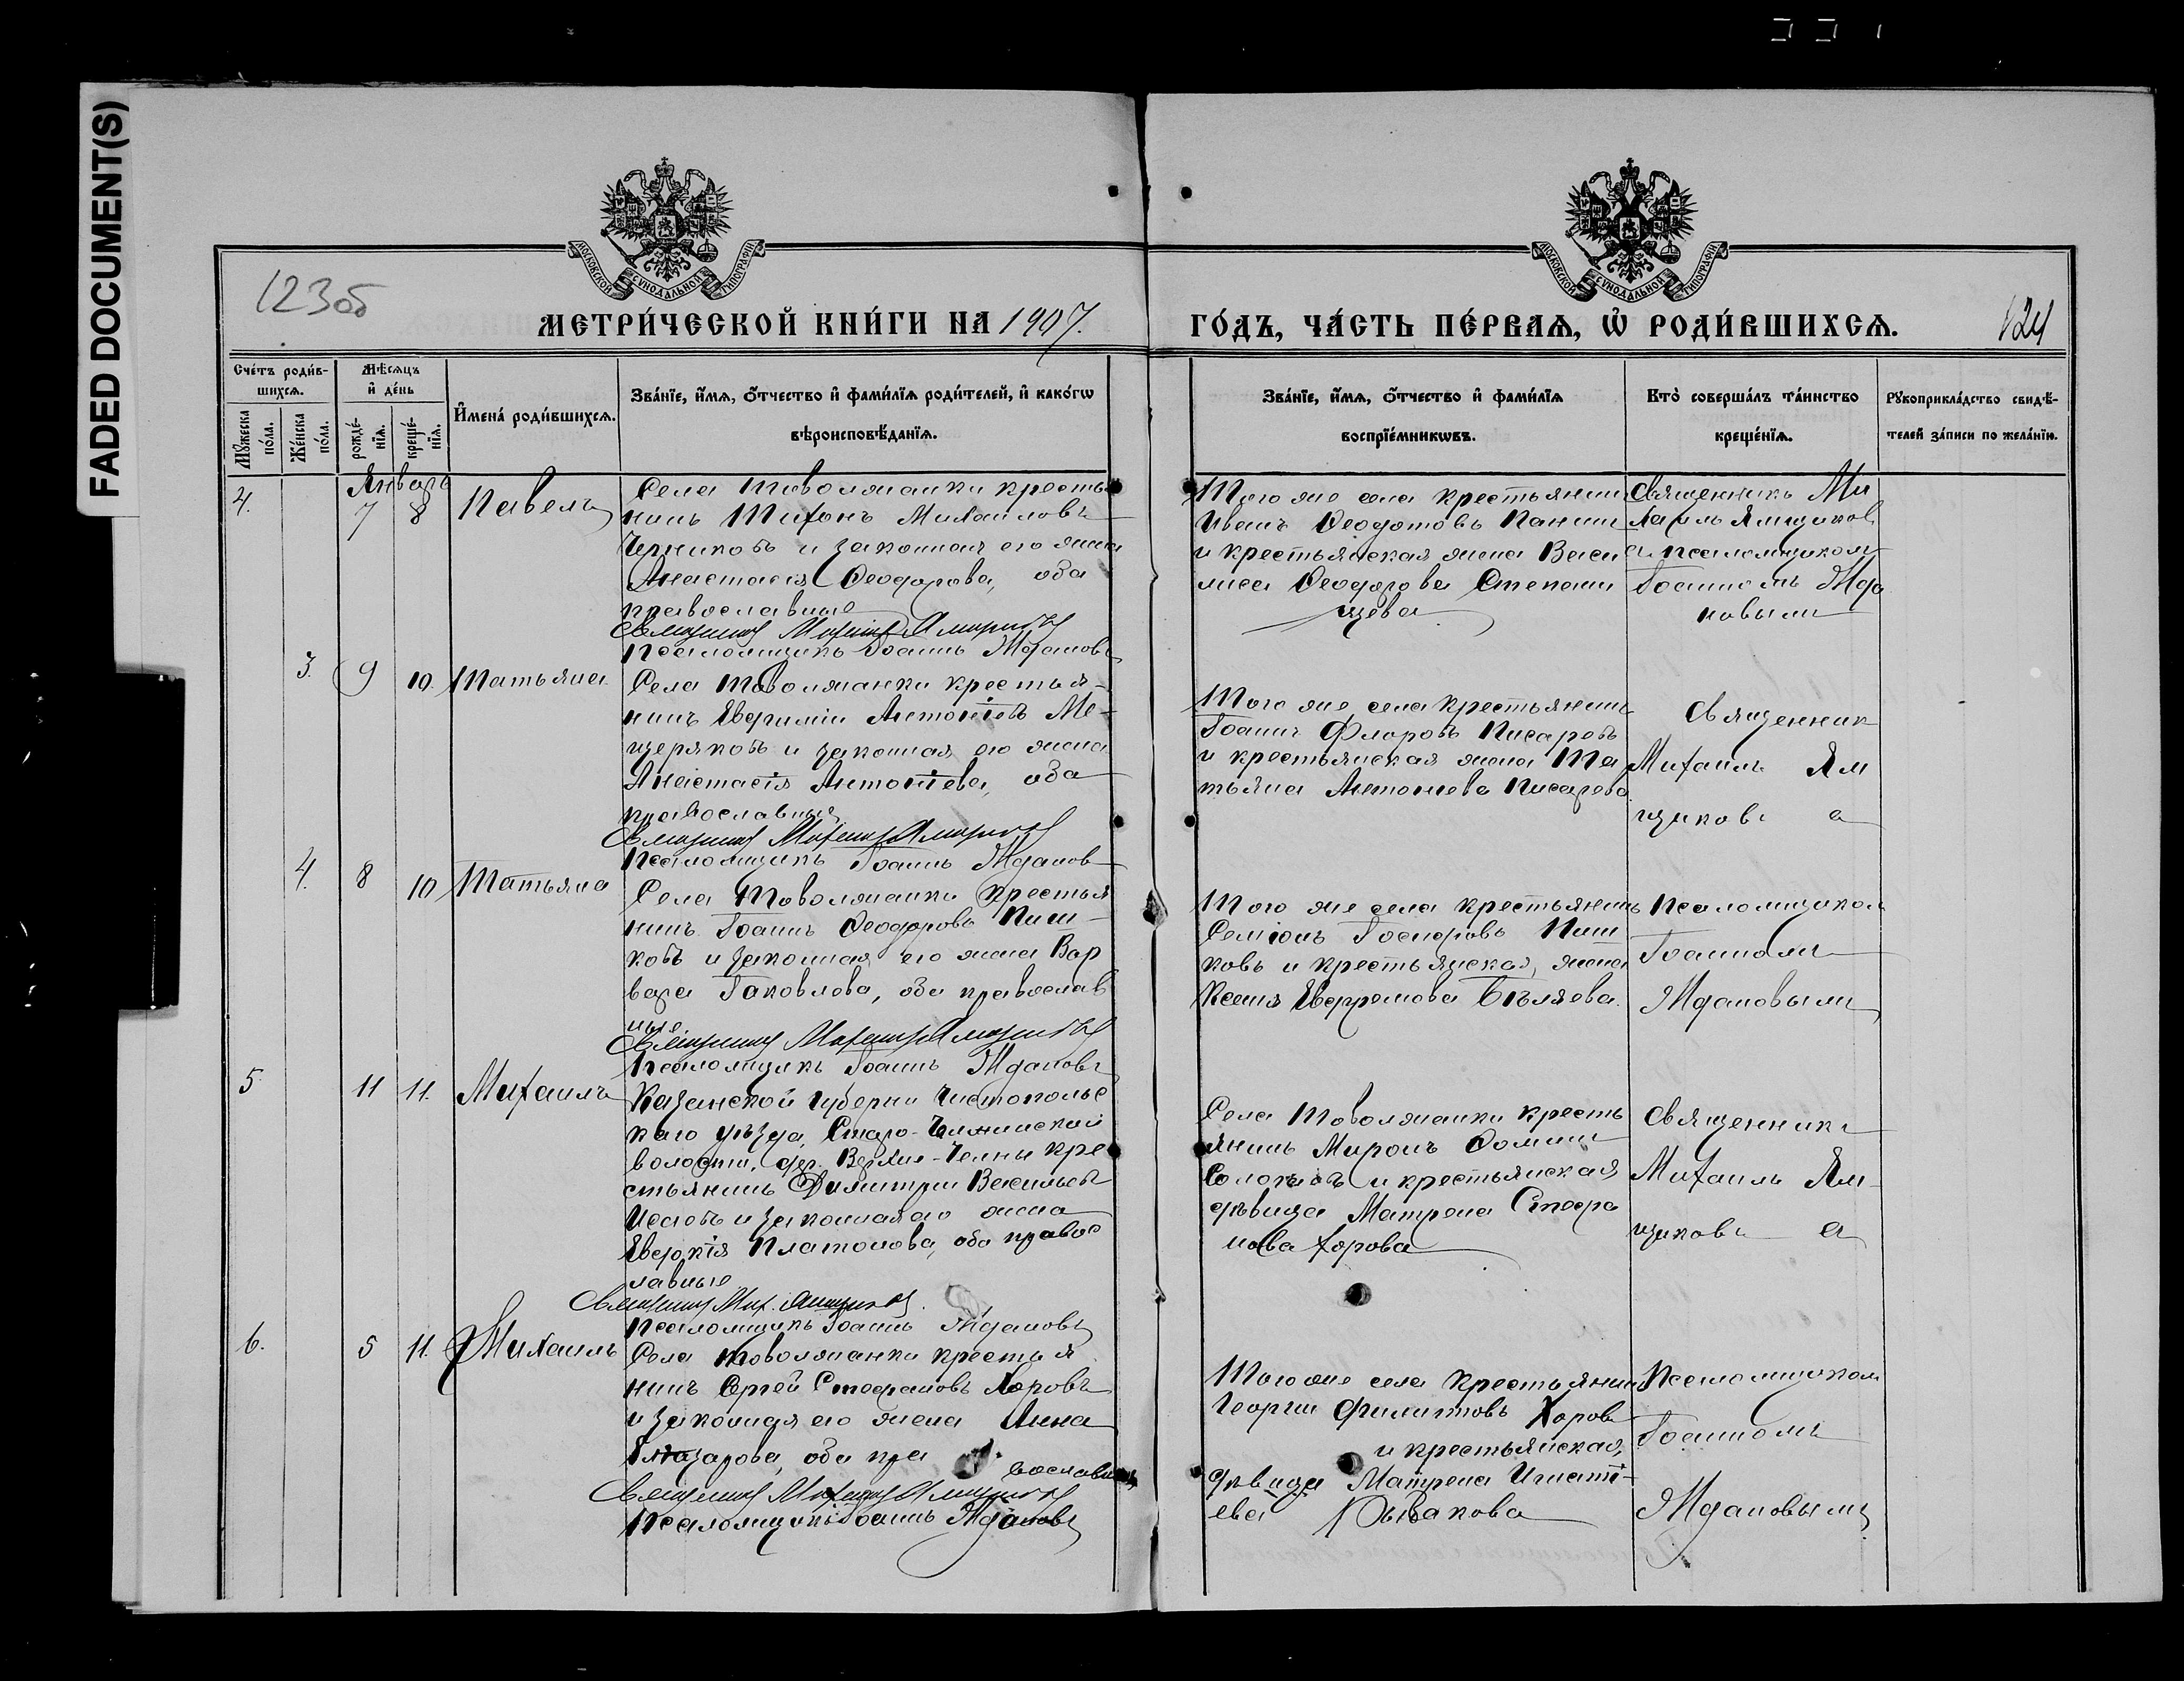 FADED DOCUMENT(S)
123об
124
МОСКОВСКОЙ СѴНОДАЛЬНОЙ ТИПОГРАФІИ
МОСКОВСКОЙ СѴНОДАЛЬНОЙ ТИПОГРАФІИ
МЕТРИ́ЧЕСКОЙ КНИ́ГИ НА 1907.
ГО́ДЪ, ЧА́СТЬ ПЕ́РВАѦ, Ѡ҆ РОДИ́ВШИХСѦ.
Сче́тъ роди́в-
шихсѧ.
Мꙋ́жеска
по́ла.
Же́нска
по́ла.
Мѣ́сѧцъ
и҆ де́нь
рожде́-
нїѧ.
креще́-
нїѧ.
И҆мена̀ роди́вшихсѧ.
Зва́нїе, и҆́мѧ, ѻ҆́тчество и҆ фами́лїѧ роди́телей, и҆ како́гѡ
вѣроисповѣ́данїѧ.
Зва́нїе, и҆́мѧ, ѻ҆́тчество и҆ фами́лїѧ
воспрїе́мникѡвъ.
Кто̀ соверша́лъ та́инство
креще́нїѧ.
Рꙋкоприкла́дство свидѣ́-
телей за́писи по жела́нїю.
Январь
4. 7 8 Павелъ
Села Товолжанки кресть
нинъ Тихонъ Михаиловъ
Черниковъ и законная его жена
Анастасія Ѳеодорова, оба
православные
Священникъ Михаилъ Ямщиковъ
Псаломщикъ Іоаннъ Ждановъ
Того же села крестьянин
Иванъ Ѳеодотовъ Панин
и крестьянская жена Васи
лиса Ѳеодорова Степани
щева
Священникъ Ми
хаилъ Ямщиков
с псаломщиком
Іоанномъ Жда
новымъ
3. 9 10. Татьяна
Села Товолжанки крестья-
нинъ Евфимій Антоніевъ Ме-
щеряковъ и законная его жена
Анастасія Антоніева, оба
православные
Священникъ Михаилъ Ямщиковъ
Псаломщикъ Іоаннъ Жданов
Того же села крестьянинъ
Іоаннъ Флоровъ Писаревъ
и крестьянская жена Та
тьяна Антониева Писарева
Священник
Михаилъ Ям
щиковъ с
4. 8 10 Татьяна
Села Товолжанки крестья
нинъ Іоаннъ Ѳеодоровъ Пиш-
ковъ и законная его жена Вар
вара Іаковлева, оба православ
ные
Священникъ Михаилъ Ямщиковъ
Псаломщикъ Іоаннъ Ждановъ
Того же села крестьянинъ
Семіонъ Пиш
ковъ и крестьянская жена
Ксенія Евфремова Бѣляева.
Псаломщиком
Іоанномъ
Ждановымъ
5 11 11. Михаилъ
Казанской губерни Чистопольс
каго уѣзда, Старо-Челнинской
волости, дер. Верхне-Челны кре
стьянинъ Димитрій Васильевъ
Исаевъ и законная его жена
Евдокія Платонова, оба правос
лавные
Священникъ Мих. Ямщиковъ.
Псаломщикъ Іоаннъ Ждановъ
Села Товолжанки кресть
янинъ Миронъ Ѳомин
и крестьянская
дѣвица Матрена Стефа
нова Хорова
Священникъ
Михаилъ Ям-
щиковъ с
6. 5 11. Михаилъ
Села Товолжанки крестья
нинъ Сергей Стефановъ Хоровъ
и законная его жена Анна
оба пра
вославные
Священникъ Михаилъ Ямщиковъ
Псаломщикъ Іоаннъ Ждановъ
Того же села крестьянин
Георгій Филиповъ Хоров
и крестьянская
дѣвица Матрена Игнаті-
ева
Псаломщиком
Іоанномъ
Ждановымъ